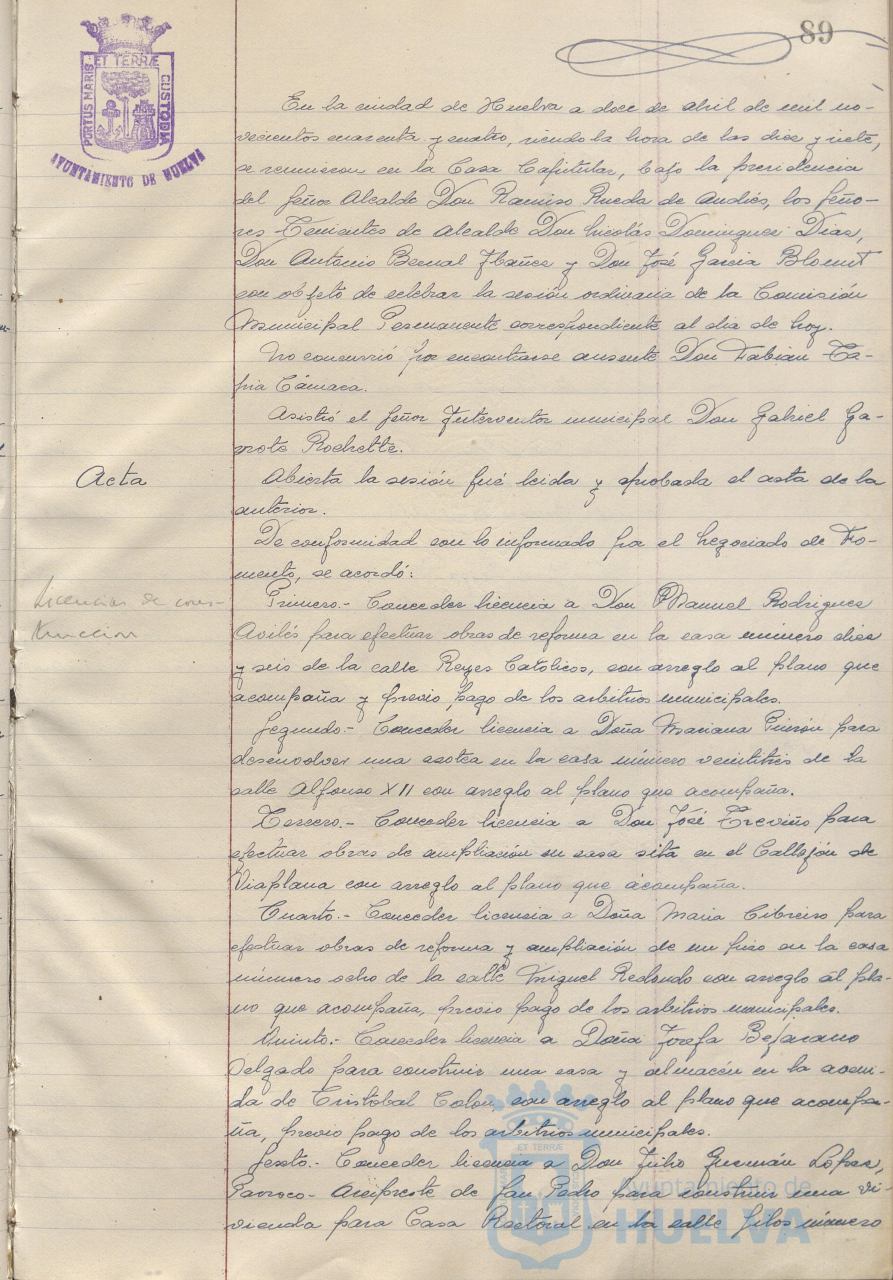 89
PORTUS MARIS ET TERRÆ CUSTODIA
AYUNTAMIENTO DE HUELVA
En la ciudad de Huelva a doce de abril de mil no-
vecientos cuarenta y cuatro, siendo la hora de las diez y siete,
se reunieron en la Casa Capitular, bajo la presidencia
del Señor Alcalde Don Ramiro Rueda de Andrés, los Seño-
res Tenientes de Alcalde Don Nicolás Dominguez Diaz,
Don Antonio Bernal Ibañez y Don José Garcia Blomut
con objeto de celebrar la sesión ordinaria de la Comisión
Municipal Permanente correspondiente al dia de hoy.
No concurrió por encontrarse ausente Don Fabian Ta-
pia Cámara.
Asistió el Señor Interventor municipal Don Gabriel Ga-
rrote Rochette.
Acta
Abierta la sesión fué leida y aprobada el acta de la
anterior.
De conformidad con lo informado por el Negociado de Fo-
mento, se acordó:
Licencias de cons-
trucción
Primero.- Conceder licencia a Don Manuel Rodriguez
Avilés para efectuar obras de reforma en la casa número diez
y seis de la calle Reyes Católicos, con arreglo al plano que
acompaña y previo pago de los arbitrios municipales.
Segundo.- Conceder licencia a Doña Mariana Pinzón para
desenvolver una azotea en la casa número veintitrés de la
calle Alfonso XII con arreglo al plano que acompaña.
Tercero.- Conceder licencia a Don José Treviño para
efectuar obras de ampliación en casa sita en el Callejón de
Viaplana con arreglo al plano que acompaña.
Cuarto.- Conceder licencia a Doña Maria Cibreiro para
efectuar obras de reforma y ampliación de un piso en la casa
número ocho de la calle Miguel Redondo con arreglo al pla-
no que acompaña, previo pago de los arbitrios municipales.
Quinto.- Conceder licencia a Doña Josefa Bejarano
Delgado para construir una casa y almacén en la aveni-
da de Cristobal Colon, con arreglo al plano que acompa-
ña, previo pago de los arbitrios municipales.
Sexto.- Conceder licencia a Don Julio Guzmán Lopez,
Parroco-Arcipreste de San Pedro para construir una vi-
vienda para Casa Rectoral en la calle Silos número
ET TERRÆ
Ayuntamiento de
HUELVA